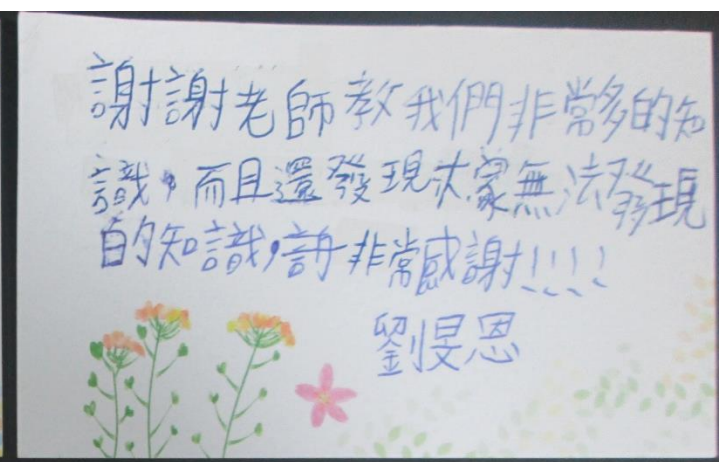 謝謝老師教我們非常多的知
識，而且還發現大家無法發現
的知識，非常感謝！！！！
劉旻恩